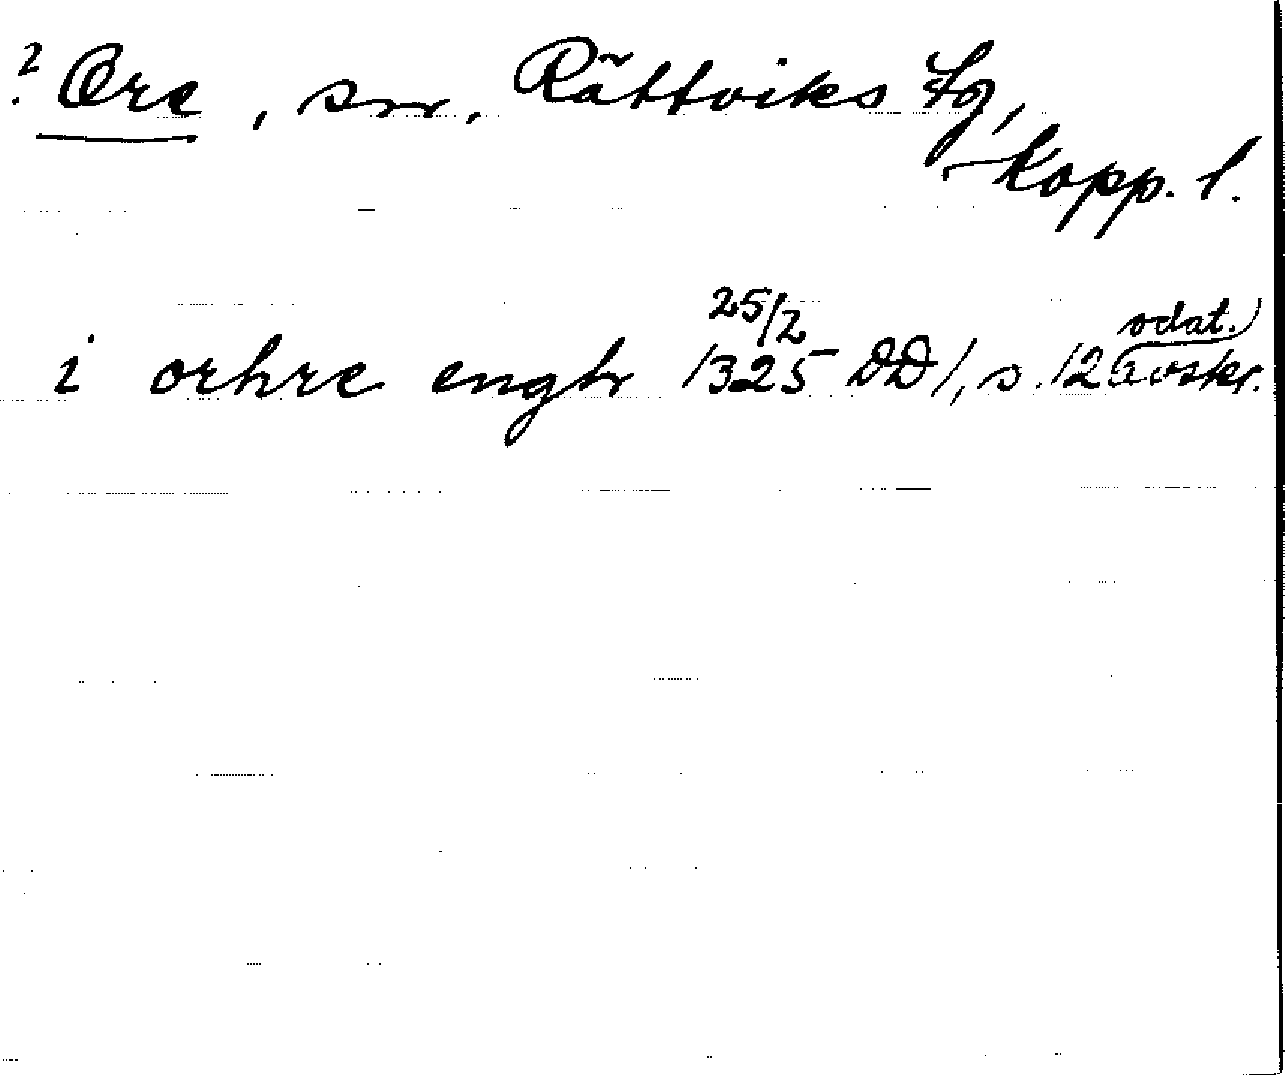 ? Ore, sn, Rättviks tg,
Kopp. l.
i orhre engh 25/2 1325 DD1, s. 12 odat.
avskr.